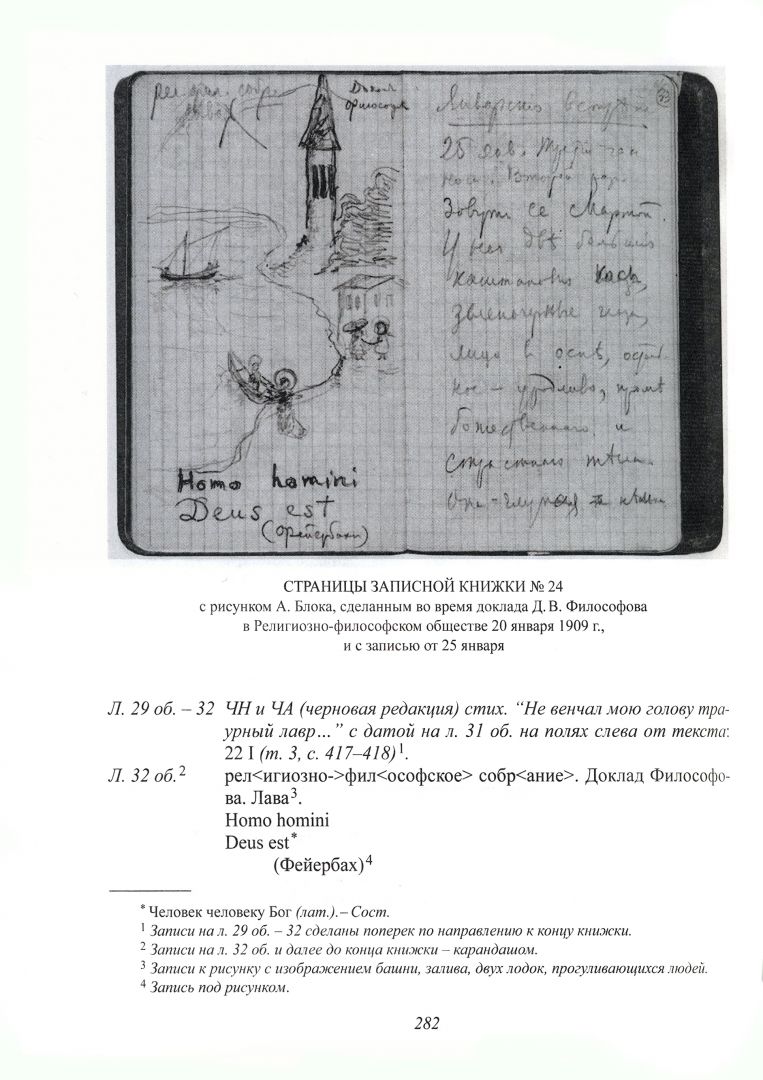 рел фил собр
Лава
Доклад
Философова
33
Январская встреча
25 янв. Третий час
ночи. Второй раз.
Зовут ее Мартой.
У нея две большия
каштановыя косы,
зеленочерные глаза,
лицо в оспе, осталь
ное – уродливо, кроме
божественного и
страстного тела.
Она – глупая
Homo homini
Deus est
(Фейербах)
СТРАНИЦЫ ЗАПИСНОЙ КНИЖКИ № 24
с рисунком А. Блока, сделанным во время доклада Д. В. Философова
в Религиозно-философском обществе 20 января 1909 г.,
и с записью от 25 января
Л. 29 об. – 32 ЧН и ЧА (черновая редакция) стих. “Не венчал мою голову тра-
урный лавр…” с датой на л. 31 об. на полях слева от текста:
22 I (т. 3, с. 417–418)1.
Л. 32 об.2 рел<игиозно->фил<ософское> собр<ание>. Доклад Философо-
ва. Лава3.
Homo homini
Deus est*
(Фейербах)4
* Человек человеку Бог (лат.).– Сост.
1 Записи на л. 29 об. – 32 сделаны поперек по направлению к концу книжки.
2 Записи на л. 32 об. и далее до конца книжки – карандашом.
3 Записи к рисунку с изображением башни, залива, двух лодок, прогуливающихся людей.
4 Запись под рисунком.
282